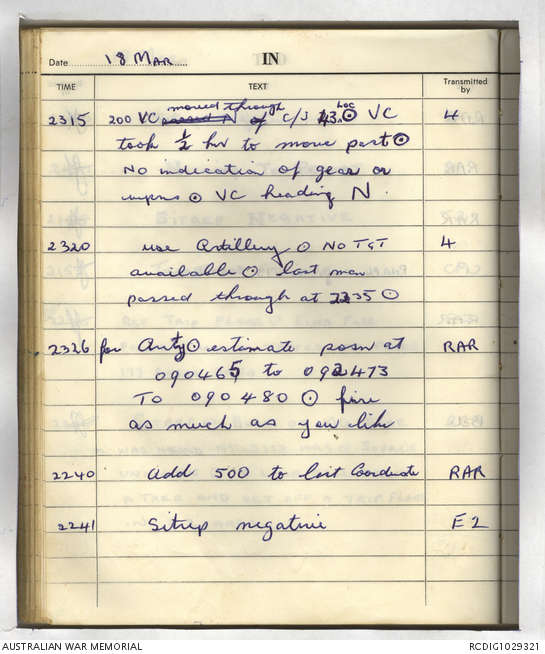 Date 18 MAR IN
TIME TEXT Transmitted by
2315 200 VC moved through of C/S 43 LOC ⊙ VC 4
took ½ hr to move past ⊙
No indication of gear or
wpns ⊙ VC heading N.
2320 use Artillery ⊙ NO TGT 4
available ⊙ last man
passed through at 2235 ⊙
2326 for Arty ⊙ estimate posn at RAR
090465 to 092473
TO 090480 ⊙ fire
as much as you like
2240 Add 500 to last Coordinate RAR
2241 Sitrep negative E2
AUSTRALIAN WAR MEMORIAL RCDIG1029321